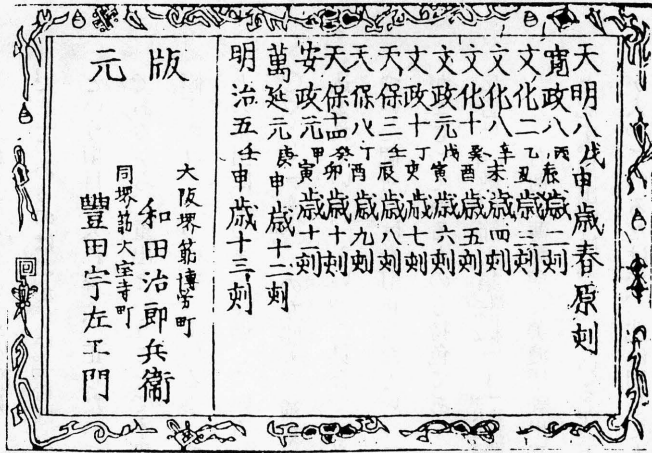 天明八戊申歳春原刻
寛政八丙辰歳二刻
文化二乙丑歳三刻
文化八辛未歳四刻
文化十癸酉歳五刻
文政元戊寅歳六刻
文政十丁亥歳七刻
天保三壬辰歳八刻
天保八丁酉歳九刻
天保十四癸卯歳十刻
安政元甲寅歳十一刻
萬延元庚申歳十二刻
明治五壬申歳十三刻
版元
大阪堺筋博労町
和田治郎兵衞
同堺筋大宝寺町
豐田宇左エ門